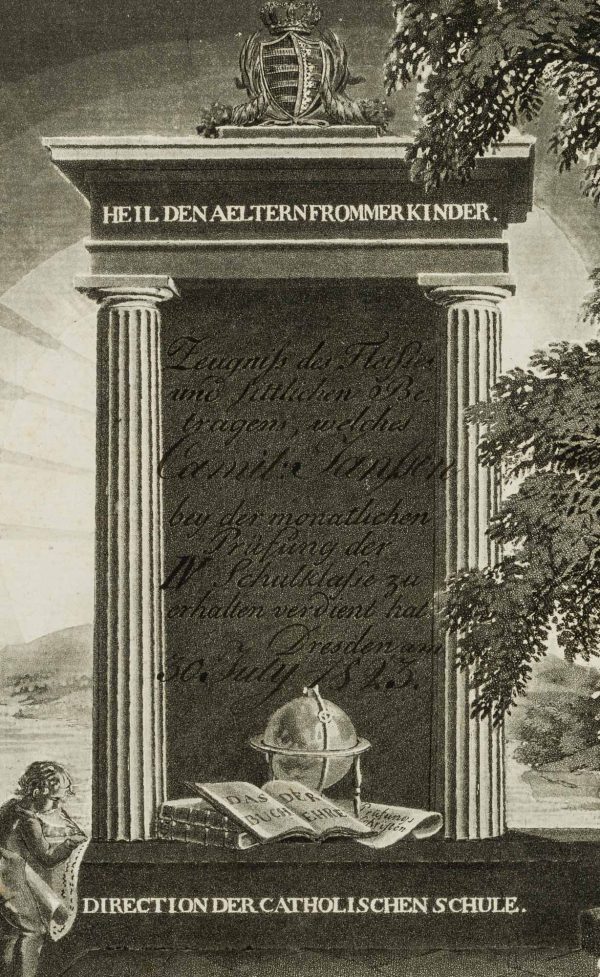 HEIL DEN AELTERN FROMMER KINDER.
Zeugniſs des Fleiſses
und ſittlichen Be-
tragens, welches
Camil:
bey der monatlichen
Prüfung der
IV Schulklaſse zu
erhalten verdient hat
Dresden am
30. July 1823.
DAS BUCH
DER EHRE
Prüfungs
DIRECTION DER CATHOLISCHEN SCHULE.